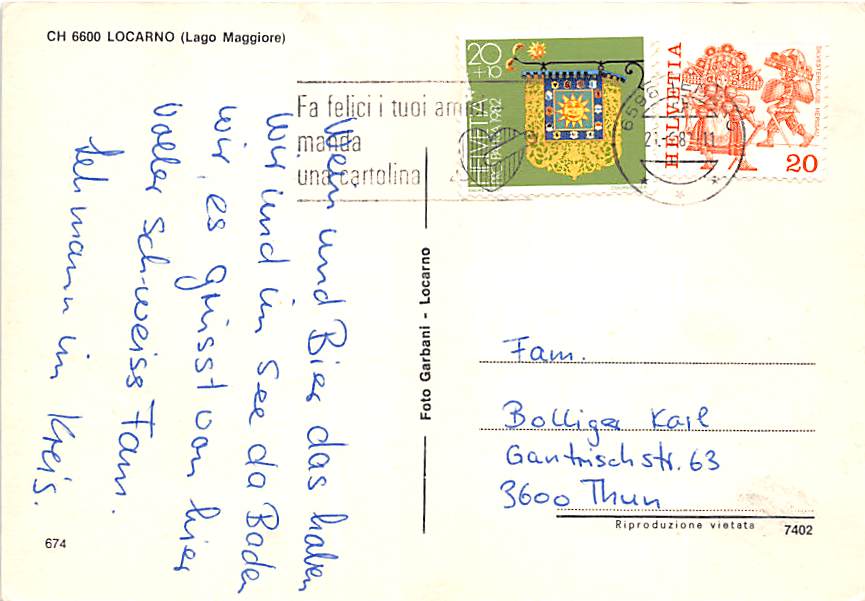 CH 6600 LOCARNO (Lago Maggiore)
Fa felici i tuoi amici
manda
una cartolina
20
+10
HELVETIA
1982
HELVETIA
20
6596
Wein und Bier das haben
wir und im See da Baden
wir, es grüsst von hier
voller schweiss Fam.
Lehmann im Kreis.
Foto Garbani - Locarno
Fam.
Bolliger Karl
Gantrischstr. 63
3600 Thun
Riproduzione vietata
7402
674